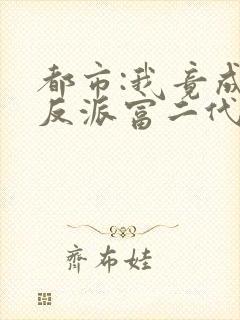 都市:我竟成
反派富二代
齊布娃